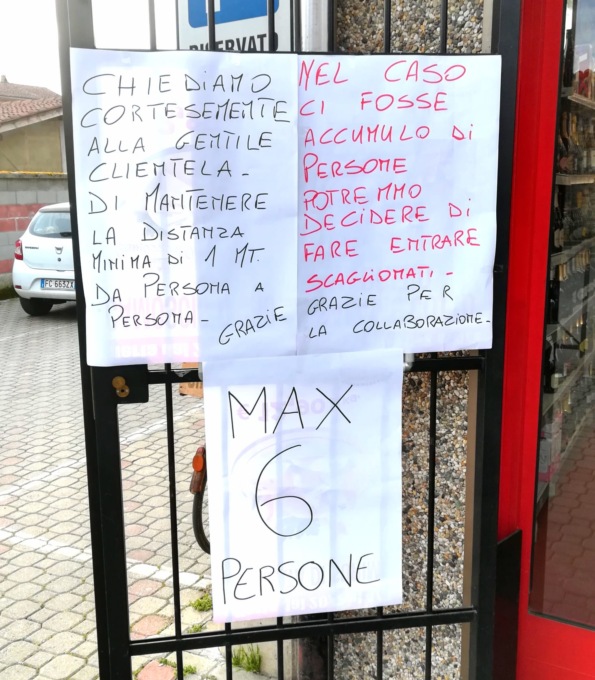 RISERVATO
CHIEDIAMO
CORTESEMENTE
ALLA GENTILE
CLIENTELA-
DI MANTENERE
LA DISTANZA
MINIMA DI 1 MT.
DA PERSONA A
PERSONA- GRAZIE
NEL CASO
CI FOSSE
ACCUMULO DI
PERSONE
POTREMMO
DECIDERE DI
FARE ENTRARE
SCAGLIONATI.-
GRAZIE PER
LA COLLABORAZIONE-
MAX
6
PERSONE